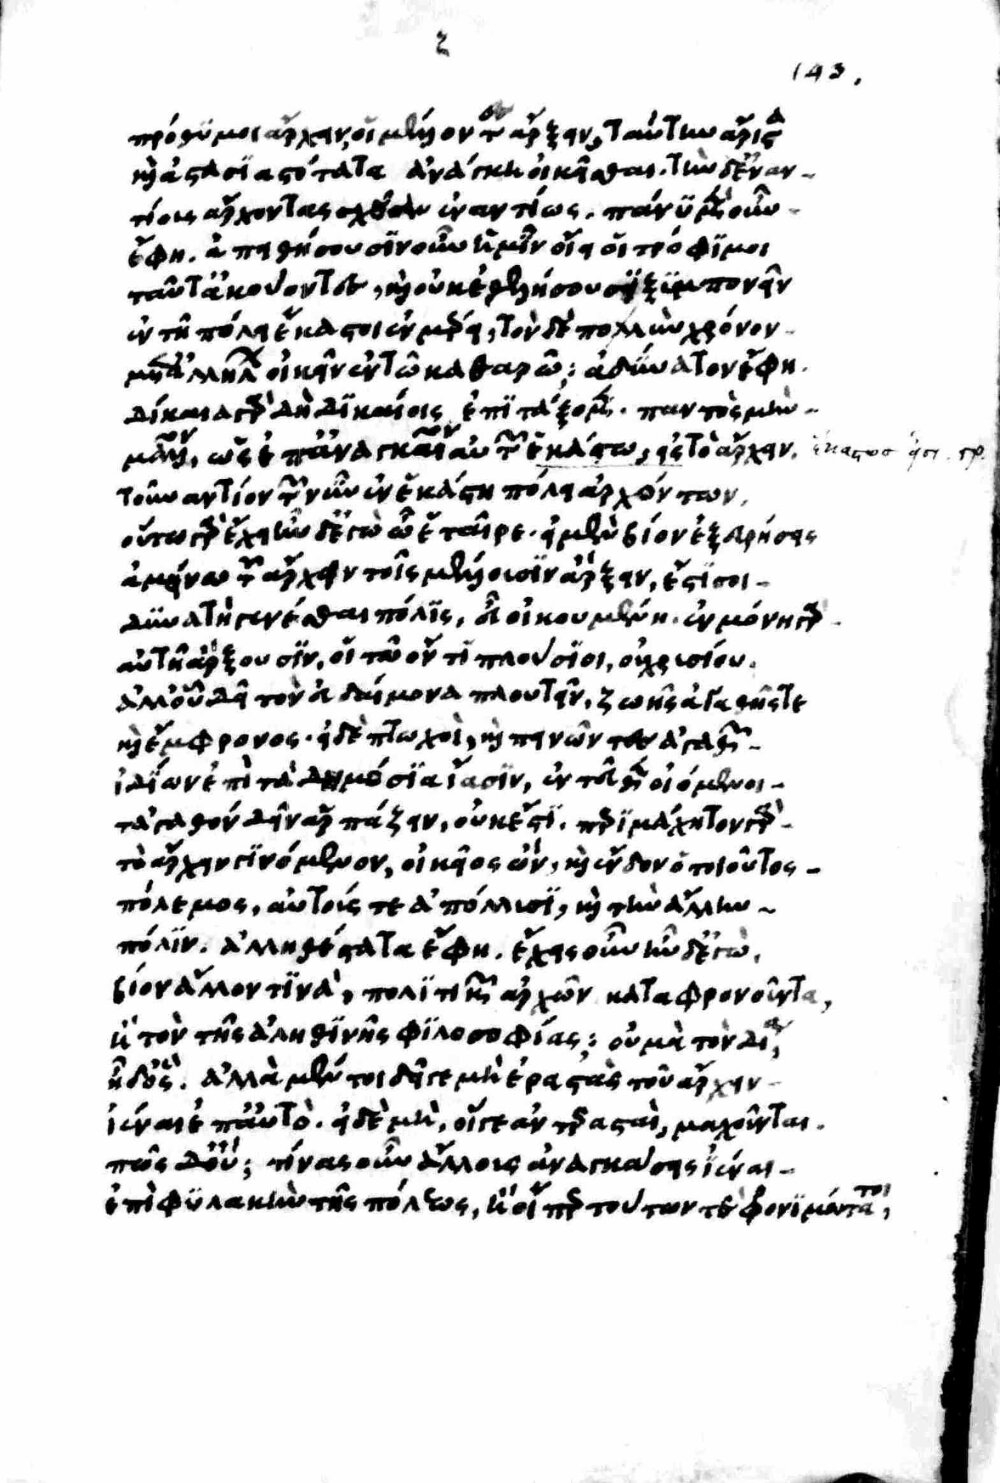 ζ
143.
πρόθυμοι ἄρχειν, οἱ μέλλοντες ἄρξειν, ταύτην ἄριστα
καὶ ἀστασιαστότατα ἀνάγκη οἰκεῖσθαι. τὴν δ' ἐναν-
τίους ἄρχοντας σχοῦσαν ἐναντίως. πάνυ μὲν οὖν
ἔφη. ἀπειθήσουσιν οὖν ἡμῖν οἴει οἱ τρόφιμοι
ταῦτ' ἀκούοντες, καὶ οὐκ ἐθελήσουσι ξυμπονεῖν
ἐν τῇ πόλει ἕκαστοι ἐν μέρει, τὸν δὲ πολὺν χρόνον
μετ' ἀλλήλων οἰκεῖν ἐν τῷ καθαρῷ; ἀδύνατον ἔφη.
δίκαια γὰρ δὴ δικαίοις ἐπιτάξομεν. παντὸς μὴν
μᾶλλον, ὡς ἐπ' ἀναγκαῖον αὐτῶν ἑκάστω, εἰς τὸ ἄρχειν.
ἕκαστος εἶσι. γρ.
τοὐναντίον τῶν νῦν ἐν ἑκάστῃ πόλει ἀρχόντων.
οὕτω γὰρ ἔχει ἦν δ' ἐγὼ ὦ ἑταῖρε. εἰ μὲν βίον ἐξευρήσεις
ἀμείνω τοῦ ἄρχειν τοῖς μέλλουσιν ἄρξειν, ἔστι σοι
δυνατὴ γενέσθαι πόλις, εὖ οἰκουμένη. ἐν μόνῃ γὰρ
αὐτῇ ἄρξουσιν, οἱ τῷ ὄντι πλούσιοι, οὐ χρυσίου.
ἀλλ' οὗ δεῖ τὸν εὐδαίμονα πλουτεῖν, ζωῆς ἀγαθῆς τε
καὶ ἔμφρονος. εἰ δὲ πτωχοὶ, καὶ πεινῶντες ἀγαθῶν
ἰδίων ἐπὶ τὰ δημόσια ἴασιν, ἐντεῦθεν οἰόμενοι
τἀγαθὸν δεῖν ἁρπάζειν, οὐκ ἔστι. περιμάχητον γὰρ
τὸ ἄρχειν γινόμενον, οἰκεῖος ὢν, καὶ ἔνδον ὁ τοιοῦτος
πόλεμος, αὐτούς τε ἀπόλλυσι, καὶ τὴν ἄλλην
πόλιν. ἀληθέστατα ἔφη. ἔχεις οὖν ἦν δ' ἐγὼ,
βίον ἄλλον τινὰ, πολιτικῶν ἀρχῶν καταφρονοῦντα,
ἢ τὸν τῆς ἀληθινῆς φιλοσοφίας; οὐ μὰ τὸν Δία,
ἦ δ' ὅς. ἀλλὰ μέντοι δεῖ γε μὴ ἐραστὰς τοῦ ἄρχειν
ἰέναι ἐπ' αὐτὸ. εἰ δὲ μὴ, οἵ γε ἀντερασταὶ, μαχοῦνται.
πῶς δ' οὔ; τίνας οὖν ἄλλους ἀναγκάσεις ἰέναι
ἐπὶ φυλακὴν τῆς πόλεως, ἢ οἳ περὶ τούτων τε φρονιμώτατοι,